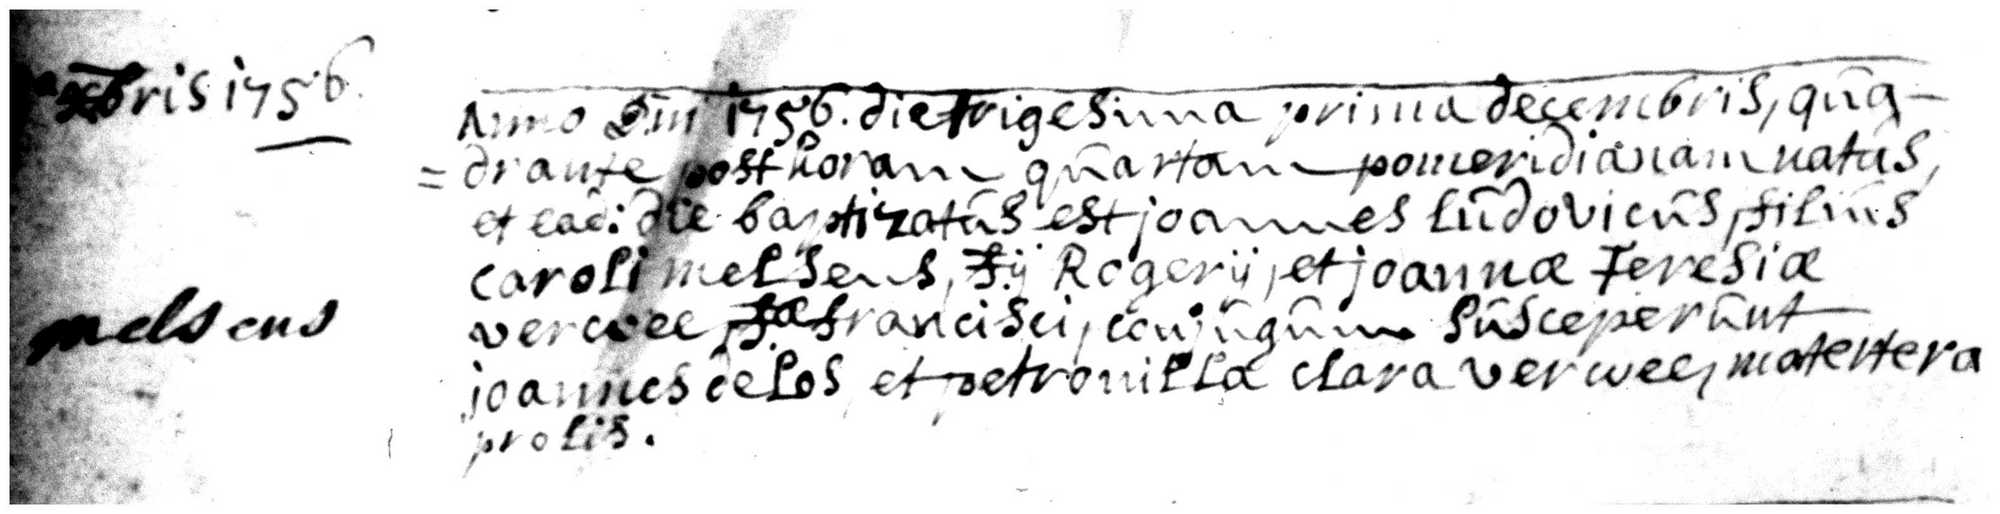 xbris 1756.
Anno Dni 1756. die trigesima prima decembris, qua-
=drante post horam quartam pomeridianam natus,
et eadē: die baptizatus est joannes ludovicus, filius
caroli melsens, fij Rogerij, et joannæ Teresiæ
verwee, fæ francisci, conjugum susceperunt
melsens
joannes delos et petronilla clara verwee, matertera
prolis.